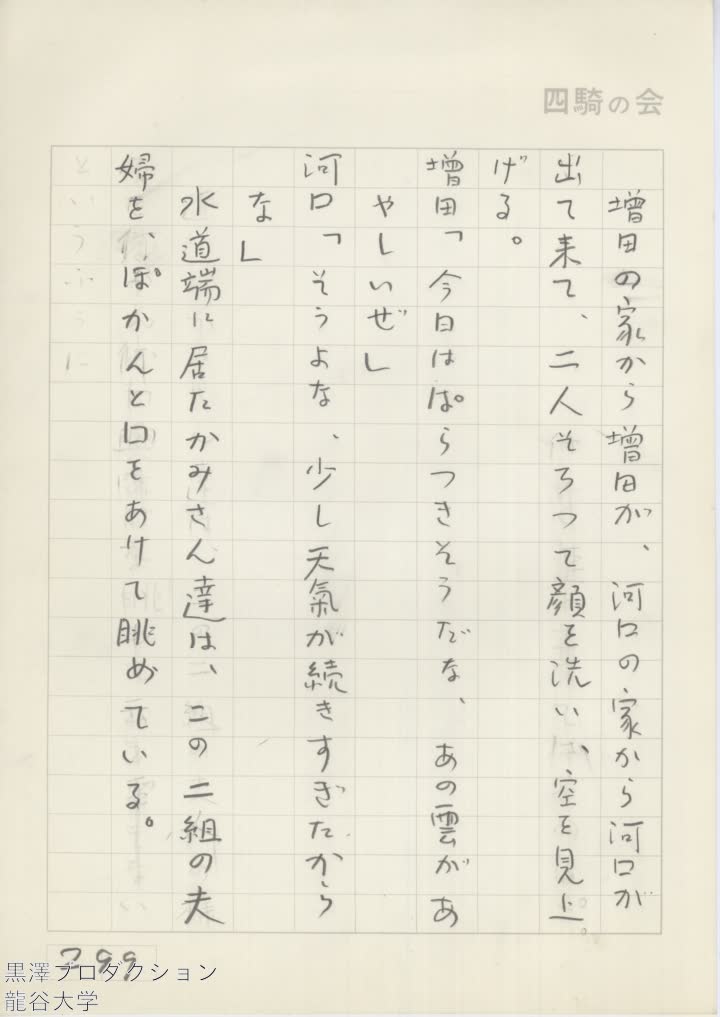 四騎の会
増田の家から増田が、河口の家から河口が
出て来て、二人そろつて顔を洗い、空を見上
げる。
増田「今日はぱらつきそうだな、あの雲があ
やしいぜ」
河口「そうよな、少し天氣が続きすぎたから
な」
水道端に居たかみさん達は、この二組の夫
婦を、ぽかんと口をあけて眺めている。
299
黒澤プロダクション
龍谷大学